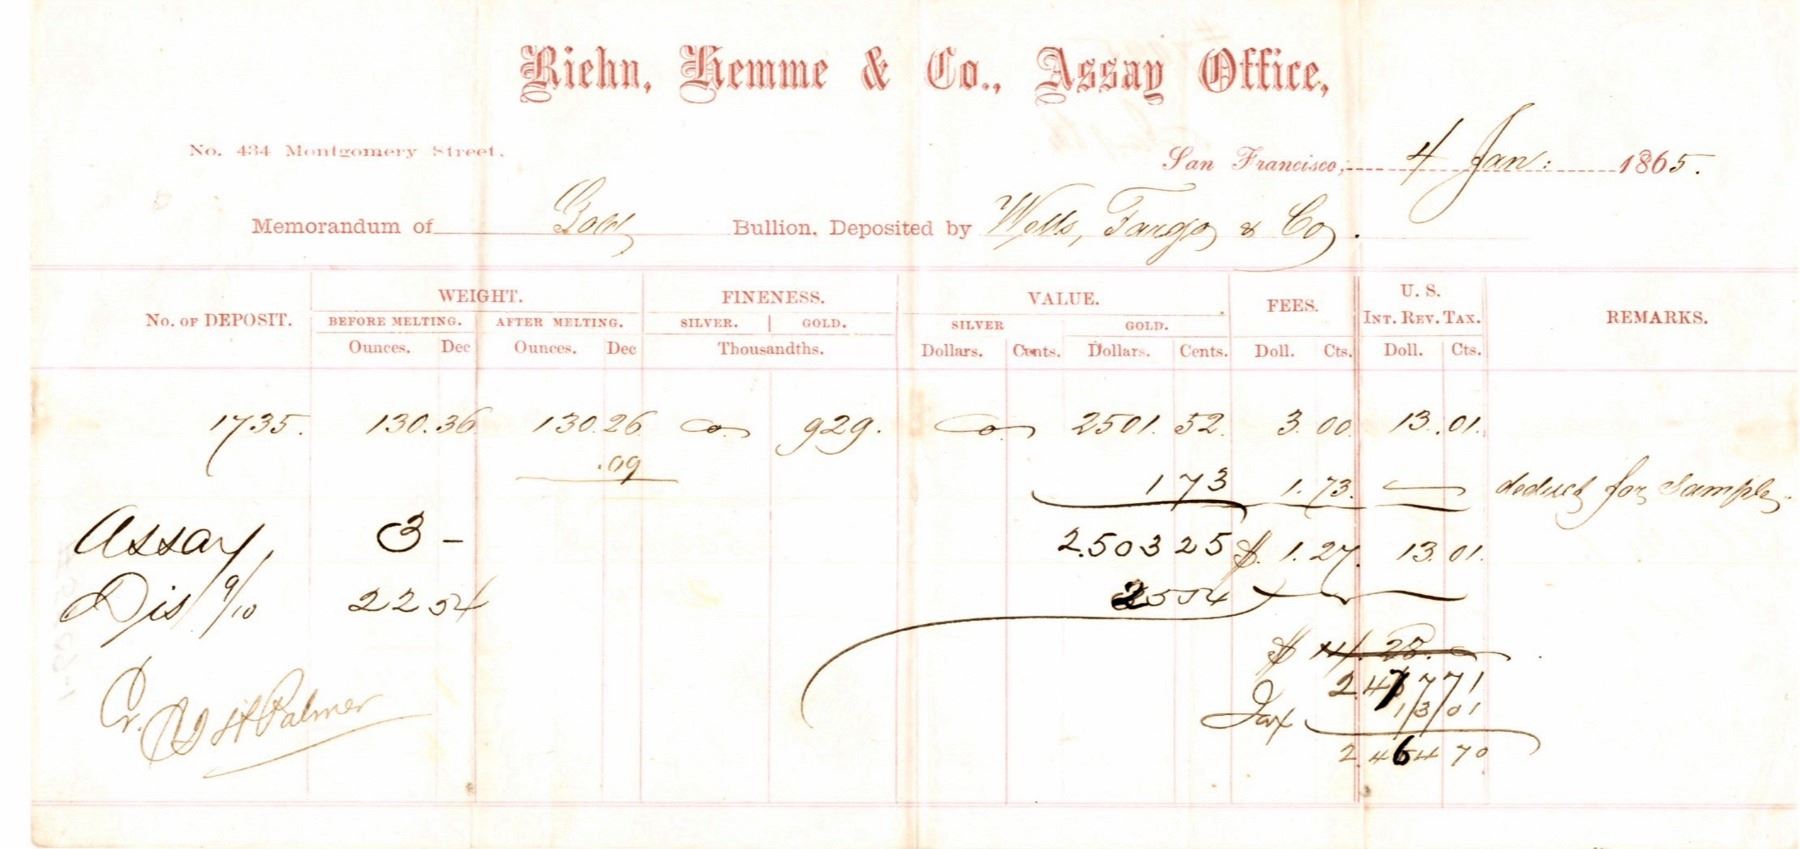 Riehn, Hemme & Co., Assay Office,
No. 434 Montgomery Street.
San Francisco, 4 Jan: 1865.
Memorandum of Gold Bullion, Deposited by Wells, Fargo & Co.
No. of DEPOSIT. WEIGHT. FINENESS. VALUE. FEES. U. S. INT. REV. TAX. REMARKS.
BEFORE MELTING. AFTER MELTING. SILVER. GOLD. SILVER GOLD.
Ounces. Dec Ounces. Dec Thousandths. Dollars. Cents. Dollars. Cents. Doll. Cts. Doll. Cts.
1735. 130.36 130.26 o 929. o 2501. 52. 3.00 13.01.
.09 173 1.73. — deduct for Sample.
Assay, 3 - 2.503 25 $ 1.27. 13.01.
Dis 9/10 22 54 25 54
$ 14.28.
2 477 71
Tax 13 01
2 464 70
Cr. Palmer